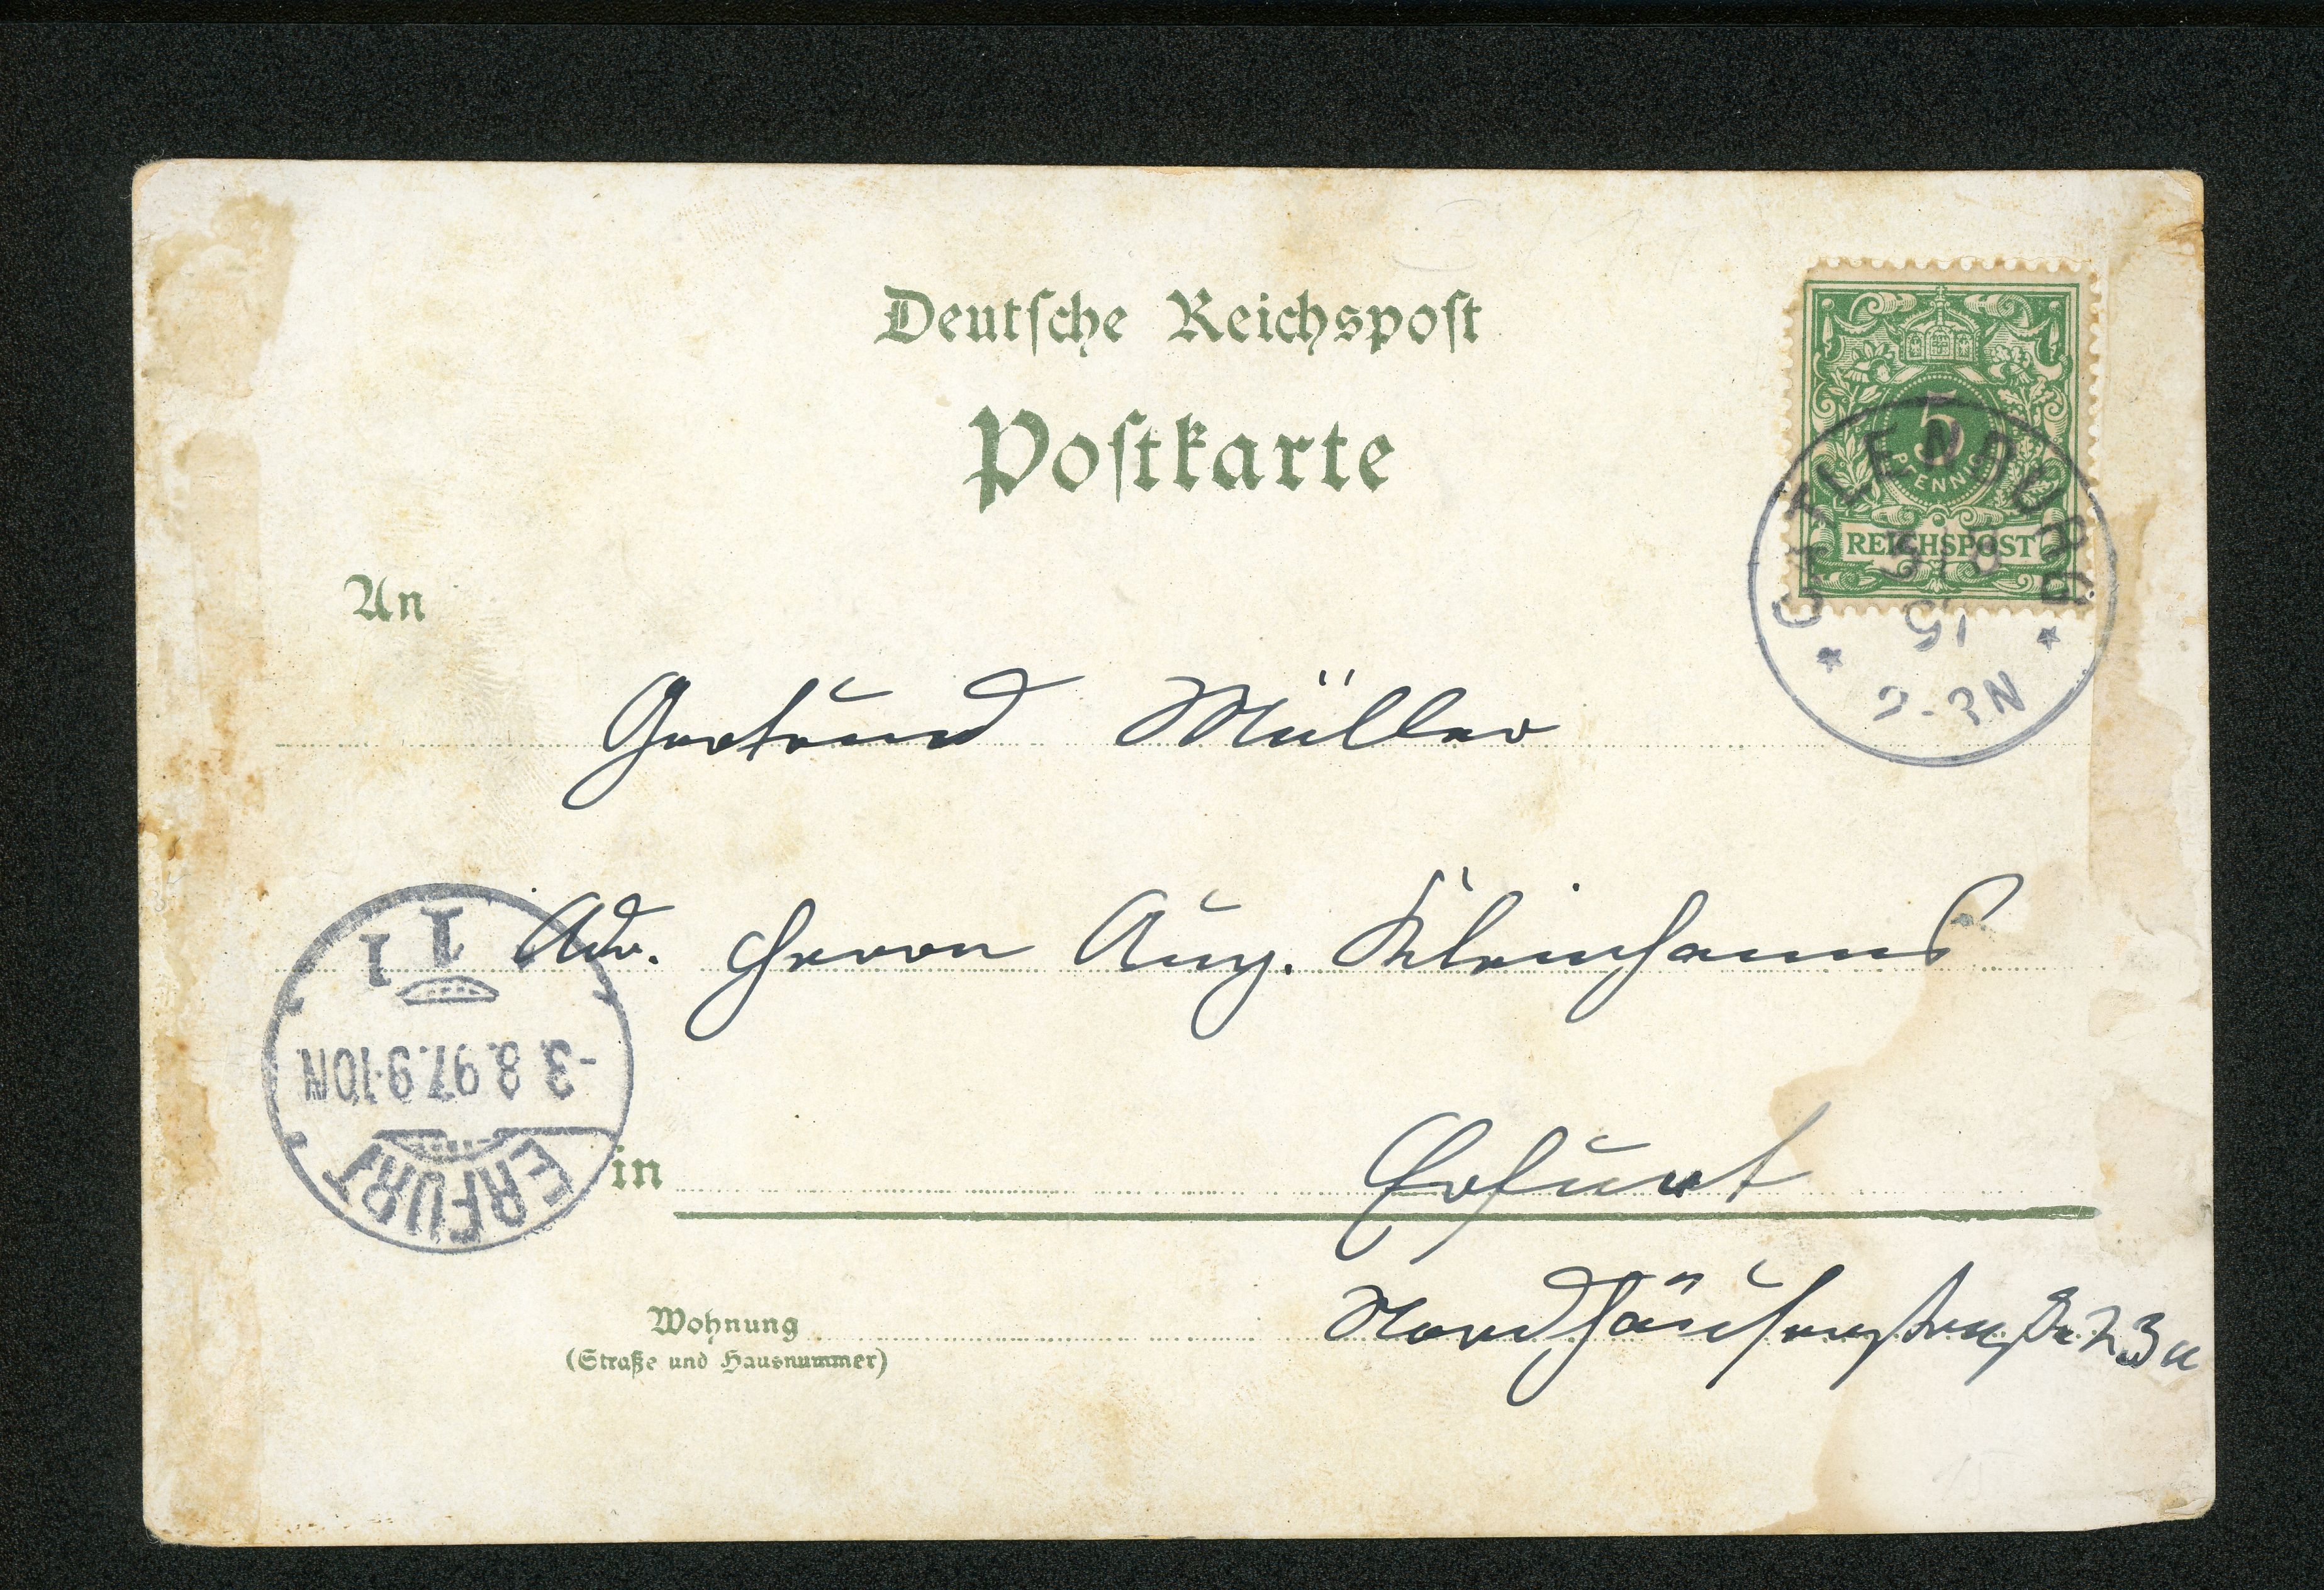 Deutsche Reichspost
Postkarte
5
PFENNIG
REICHSPOST
CATLENBURG
3/8
2-3N
An
Gertrud Müller
Adr. Herrn Aug. Kleinhanns
1 1
-3.8.97.9-10N
ERFURT
in Erfurt
Wohnung
(Straße und Hausnummer)
Nordhäuserstraße 23